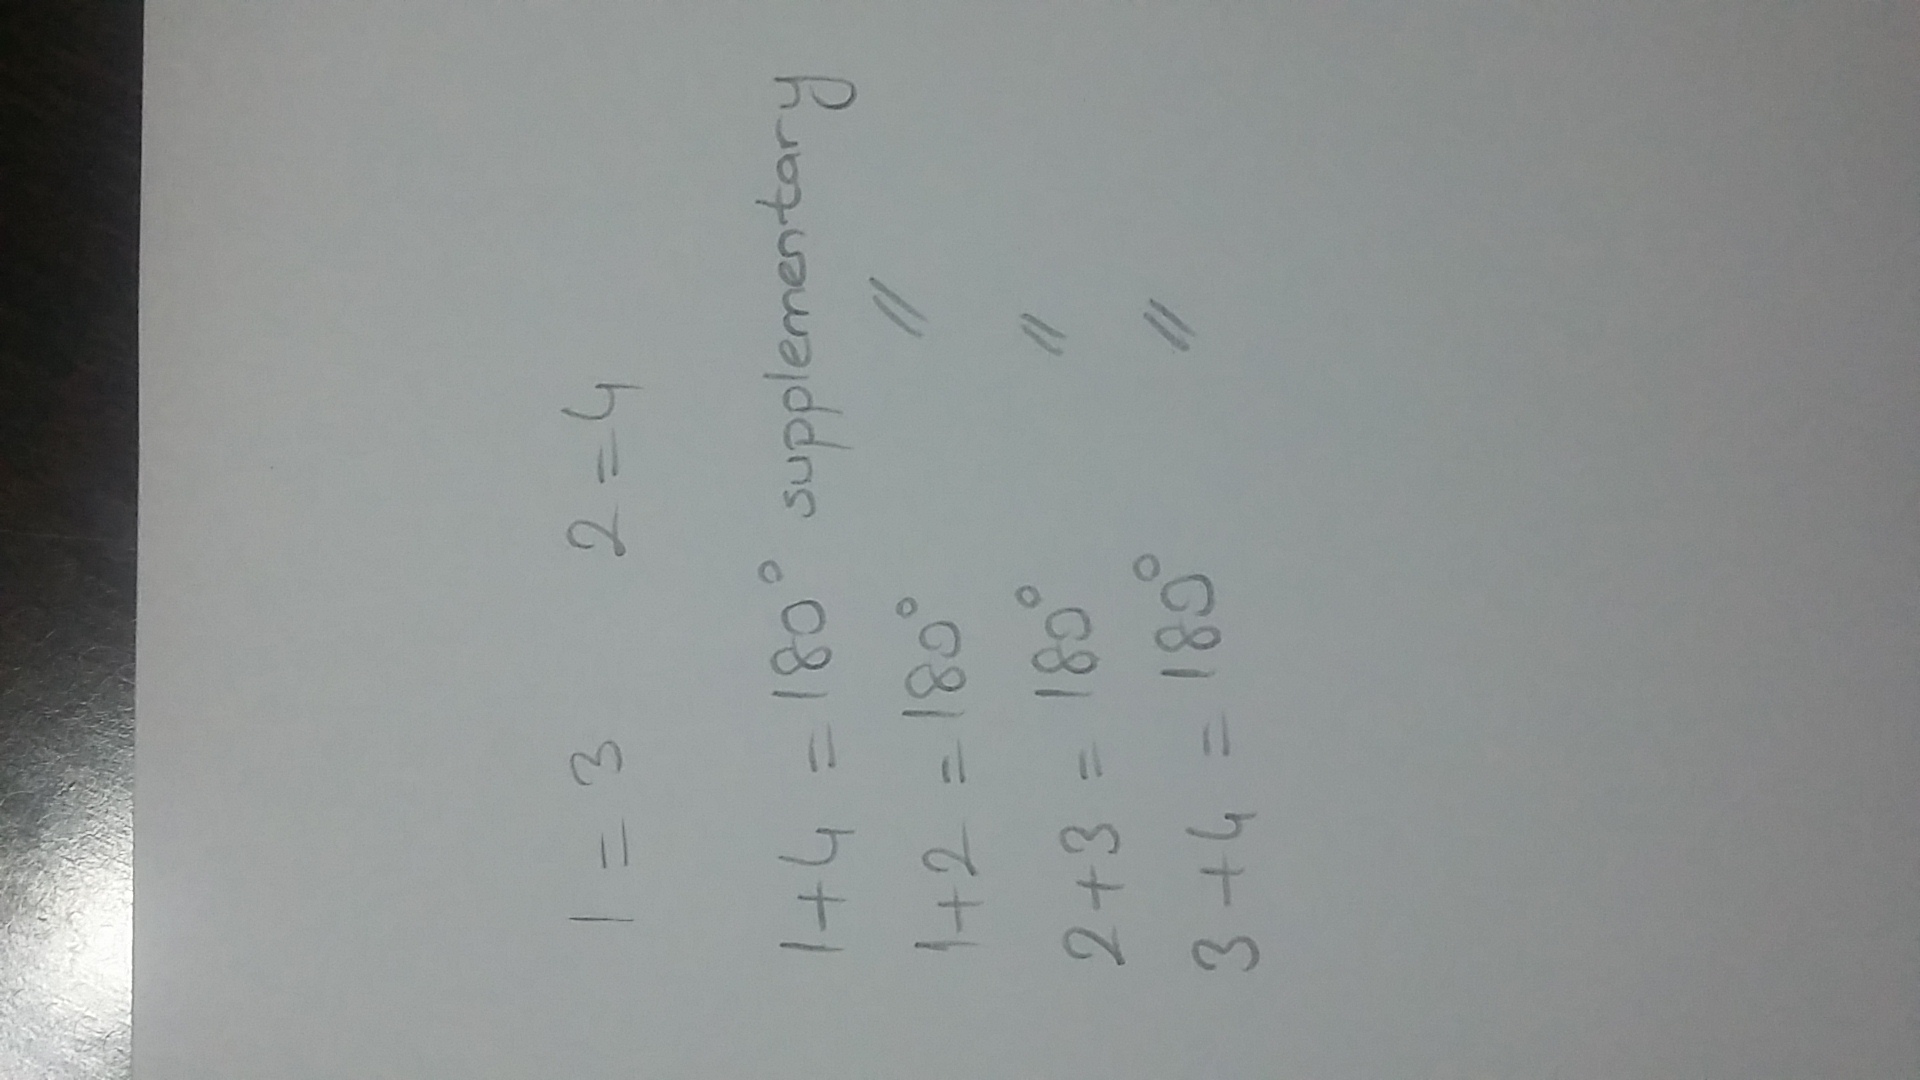 1 = 3 2 = 4
1 + 4 = 180° supplementary
1 + 2 = 180° //
2 + 3 = 180° //
3 + 4 = 180° //